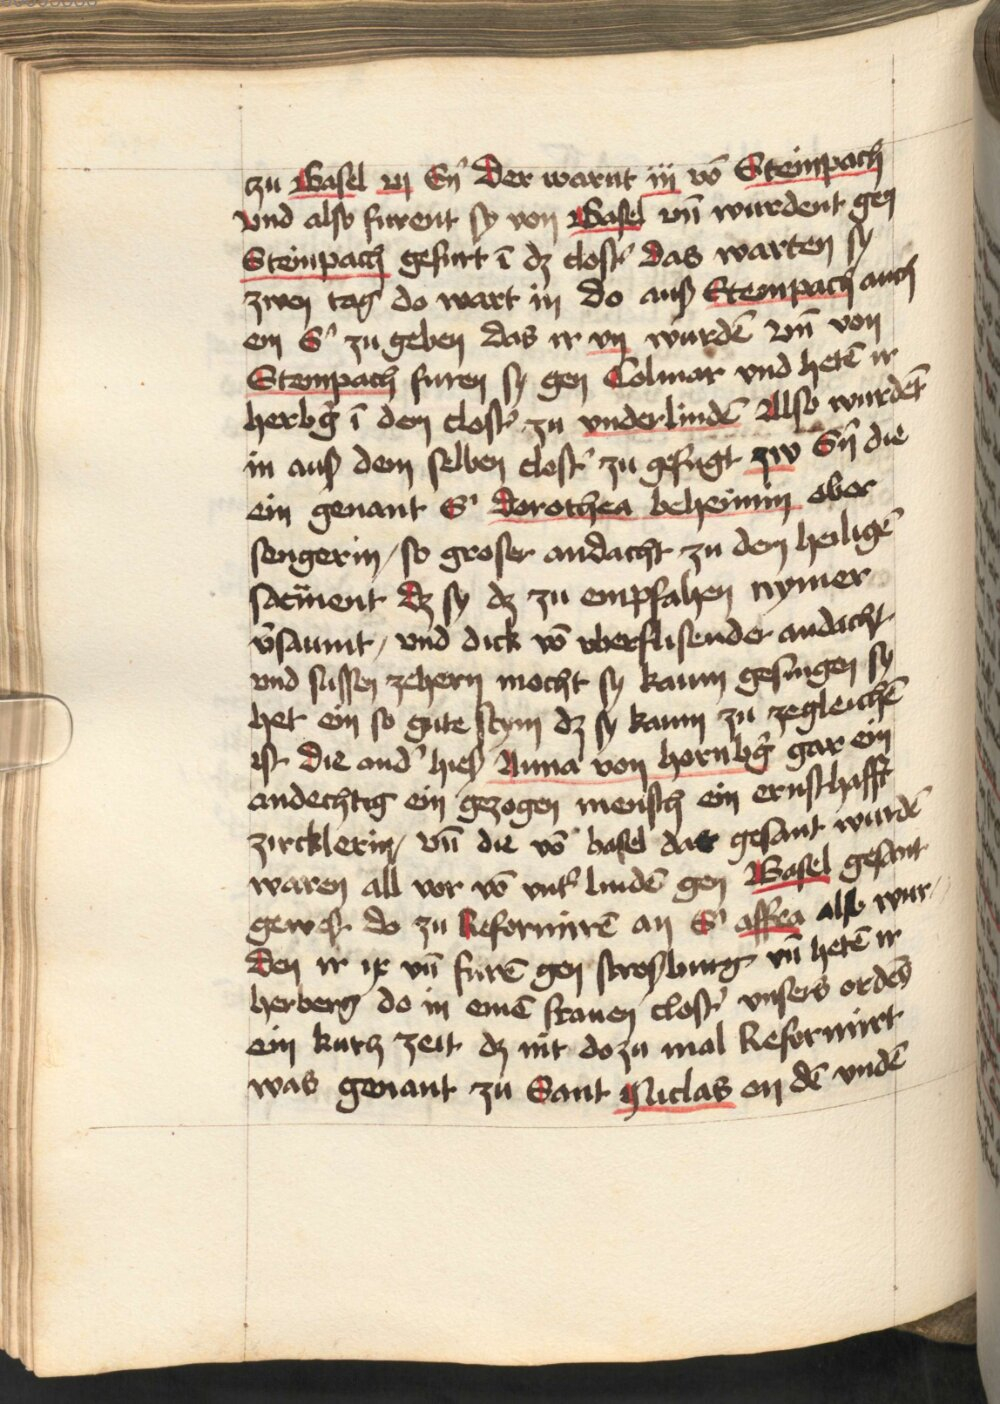 zu Basel vj Sn̄ Der warnt iij vō Steinpach
vnd also furent sy von Basel vn̄ wurdent gen
Steinpach gefurt ī dz clost' das warten sy
zwen tag do wart in do auß Steinpach auch
ein S' zu geben das ir vii wurdē vn̄ von
Steinpach furen sy gen Colmar vnd hetē ir
herbg̑ ī dem clost' zu vnderlindē Also wurdēt
in auß dem selben clost' zu gefugt zw Sn̄ die
ein genant S' Dorothea beheimin ober
sengerin / so groser andacht zu dem heiligē
sacm̄ent Dz sy dz zu empfahen nymer
v̄saumt / vnd dick vō vberflisender andacht
vnd sussen zehern mocht sy kaum gesingen sy
het ein so gute stym dz sy kaum zu zegleichē
ist die and' hieß Anna von hornbg̑ gar ein
andechtig ein gezogen mensch ein ernsthafft
zircklerin / vn̄ die vō basel dar gesant wurdē
waren all vor vō vnt' lindē gen Basel gesant
gewest do zu Reformirē an S' affra also wur /
den ir ix vn̄ furē gen stroßburg vn̄ hetē ir
herberg do in einē frauen clost' vnsers ordēs
ein kurtz zeit dz nit dozu mal Reformirt
was genant zu Sant Niclas en dē vndē